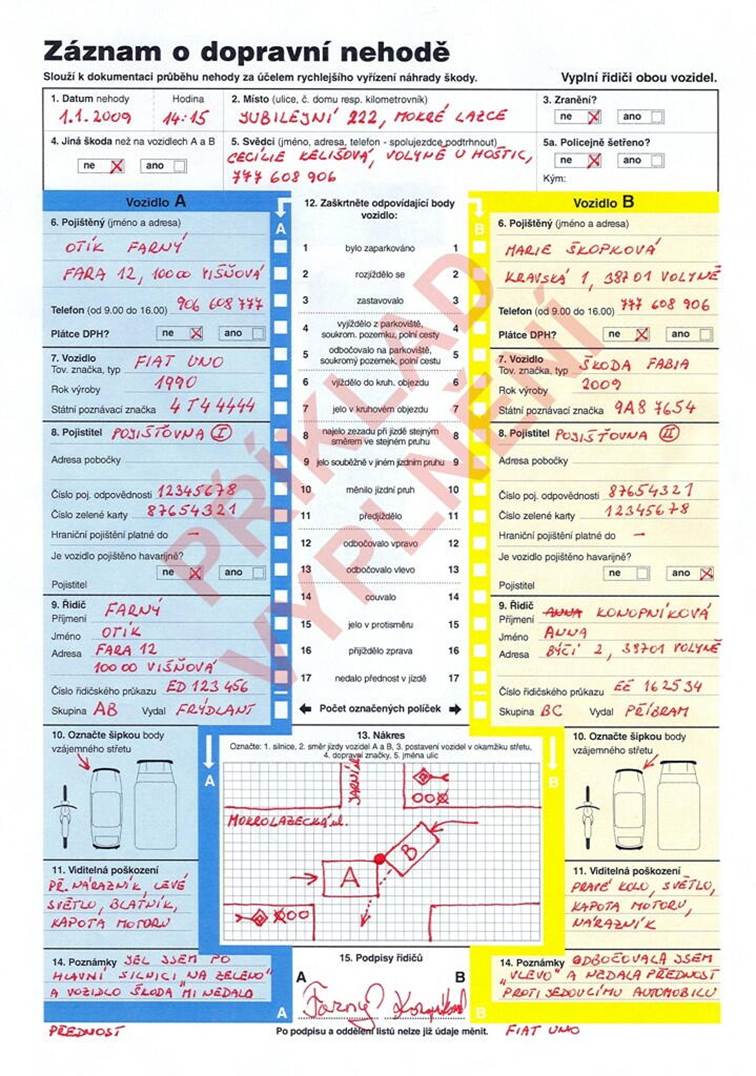 Záznam o dopravní nehodě
Slouží k dokumentaci průběhu nehody za účelem rychlejšího vyřízení náhrady škody.
Vyplní řidiči obou vozidel.
1. Datum nehody Hodina
1.1.2009 14:15
2. Místo (ulice, č. domu resp. kilometrovník)
JUBILEJNÍ 222, MOKRÉ LAZCE
3. Zranění?
ne X ano
4. Jiná škoda než na vozidlech A a B
ne X ano
5. Svědci (jméno, adresa, telefon - spolujezdce podtrhnout)
CECÍLIE KELIŠOVÁ, VOLYNĚ U HOŠTIC,
777 608 906
5a. Policejně šetřeno?
ne X ano
Kým:
Vozidlo A
6. Pojištěný (jméno a adresa)
OTÍK FARNÝ
FARA 12, 100 00 VIŠŇOVÁ
Telefon (od 9.00 do 16.00) 906 608 777
Plátce DPH? ne X ano
7. Vozidlo
Tov. značka, typ FIAT UNO
Rok výroby 1990
Státní poznávací značka 4T4 4444
8. Pojistitel POJIŠŤOVNA I
Adresa pobočky
Číslo poj. odpovědnosti 12345678
Číslo zelené karty 87654321
Hraniční pojištění platné do –
Je vozidlo pojištěno havarijně?
ne X ano
Pojistitel
9. Řidič
Příjmení FARNÝ
Jméno OTÍK
Adresa FARA 12
100 00 VIŠŇOVÁ
Číslo řidičského průkazu ED 123 456
Skupina AB Vydal FRÝDLANT
A
12. Zaškrtněte odpovídající body
vozidlo:
B
1 bylo zaparkováno 1
2 rozjíždělo se 2
3 zastavovalo 3
4 vyjíždělo z parkoviště, soukrom. pozemku, polní cesty 4
5 odbočovalo na parkoviště, soukromý pozemek, polní cestu 5
6 vjíždělo do kruh. objezdu 6
7 jelo v kruhovém objezdu 7
8 najelo zezadu při jízdě stejným směrem ve stejném pruhu 8
9 jelo souběžně v jiném jízdním pruhu 9
10 měnilo jízdní pruh 10
11 předjíždělo 11
12 odbočovalo vpravo 12
13 odbočovalo vlevo 13
14 couvalo 14
15 jelo v protisměru 15
16 přijíždělo zprava 16
17 nedalo přednost v jízdě 17
Počet označených políček
PŘÍKLAD
VYPLNĚNÍ
Vozidlo B
6. Pojištěný (jméno a adresa)
MARIE ŠKOPKOVÁ
KRAVSKÁ 1, 387 01 VOLYNĚ
Telefon (od 9.00 do 16.00) 777 608 906
Plátce DPH? ne X ano
7. Vozidlo
Tov. značka, typ ŠKODA FABIA
Rok výroby 2009
Státní poznávací značka 9A8 7654
8. Pojistitel POJIŠŤOVNA II
Adresa pobočky
Číslo poj. odpovědnosti 87654321
Číslo zelené karty 12345678
Hraniční pojištění platné do –
Je vozidlo pojištěno havarijně?
ne ano X
Pojistitel
9. Řidič ANNA KONOPNÍKOVÁ
Příjmení
Jméno ANNA
Adresa BÝČÍ 2, 38701 VOLYNĚ
Číslo řidičského průkazu EČ 162534
Skupina BC Vydal PŘÍBRAM
10. Označte šipkou body
vzájemného střetu
A
13. Nákres
Označte: 1. silnice, 2. směr jízdy vozidel A a B, 3. postavení vozidel v okamžiku střetu,
4. dopravní značky, 5. jména ulic
JARNÍ ul.
MOKROLAZECKÁ ul.
A
B
B
10. Označte šipkou body
vzájemného střetu
11. Viditelná poškození
PŘ. NÁRAZNÍK, LEVÉ
SVĚTLO, BLATNÍK,
KAPOTA MOTORU
11. Viditelná poškození
PRAVÉ KOLO, SVĚTLO,
KAPOTA MOTORU,
NÁRAZNÍK
14. Poznámky JEL JSEM PO
HLAVNÍ SILNICI NA ZELENOU
A VOZIDLO ŠKODA MI NEDALO
PŘEDNOST
15. Podpisy řidičů
A B
Farný Konopníková
A B
Po podpisu a oddělení listů nelze již údaje měnit.
14. Poznámky ODBOČOVALA JSEM
„VLEVO“ A NEDALA PŘEDNOST
PROTIJEDOUCÍMU AUTOMOBILU
FIAT UNO